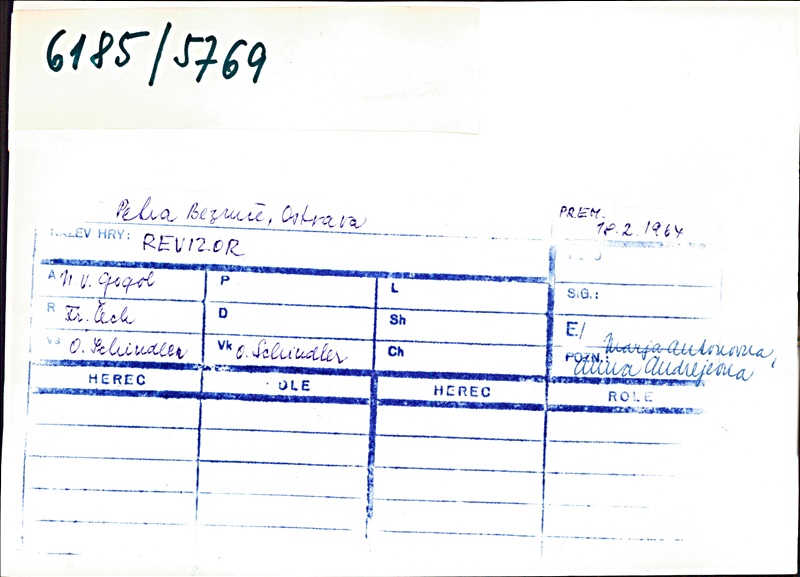 6185/5769
Petra Bezruče, Ostrava
PREM. 18.2.1964
NÁZEV HRY: REVIZOR
A N. V. Gogol P L SIG.:
R Fr. Čech D Sh E/ Marja Antonovna,
Vs O. Schindler Vk O. Schindler Ch POZN. Anna Andrejevna
HEREC ROLE HEREC ROLE